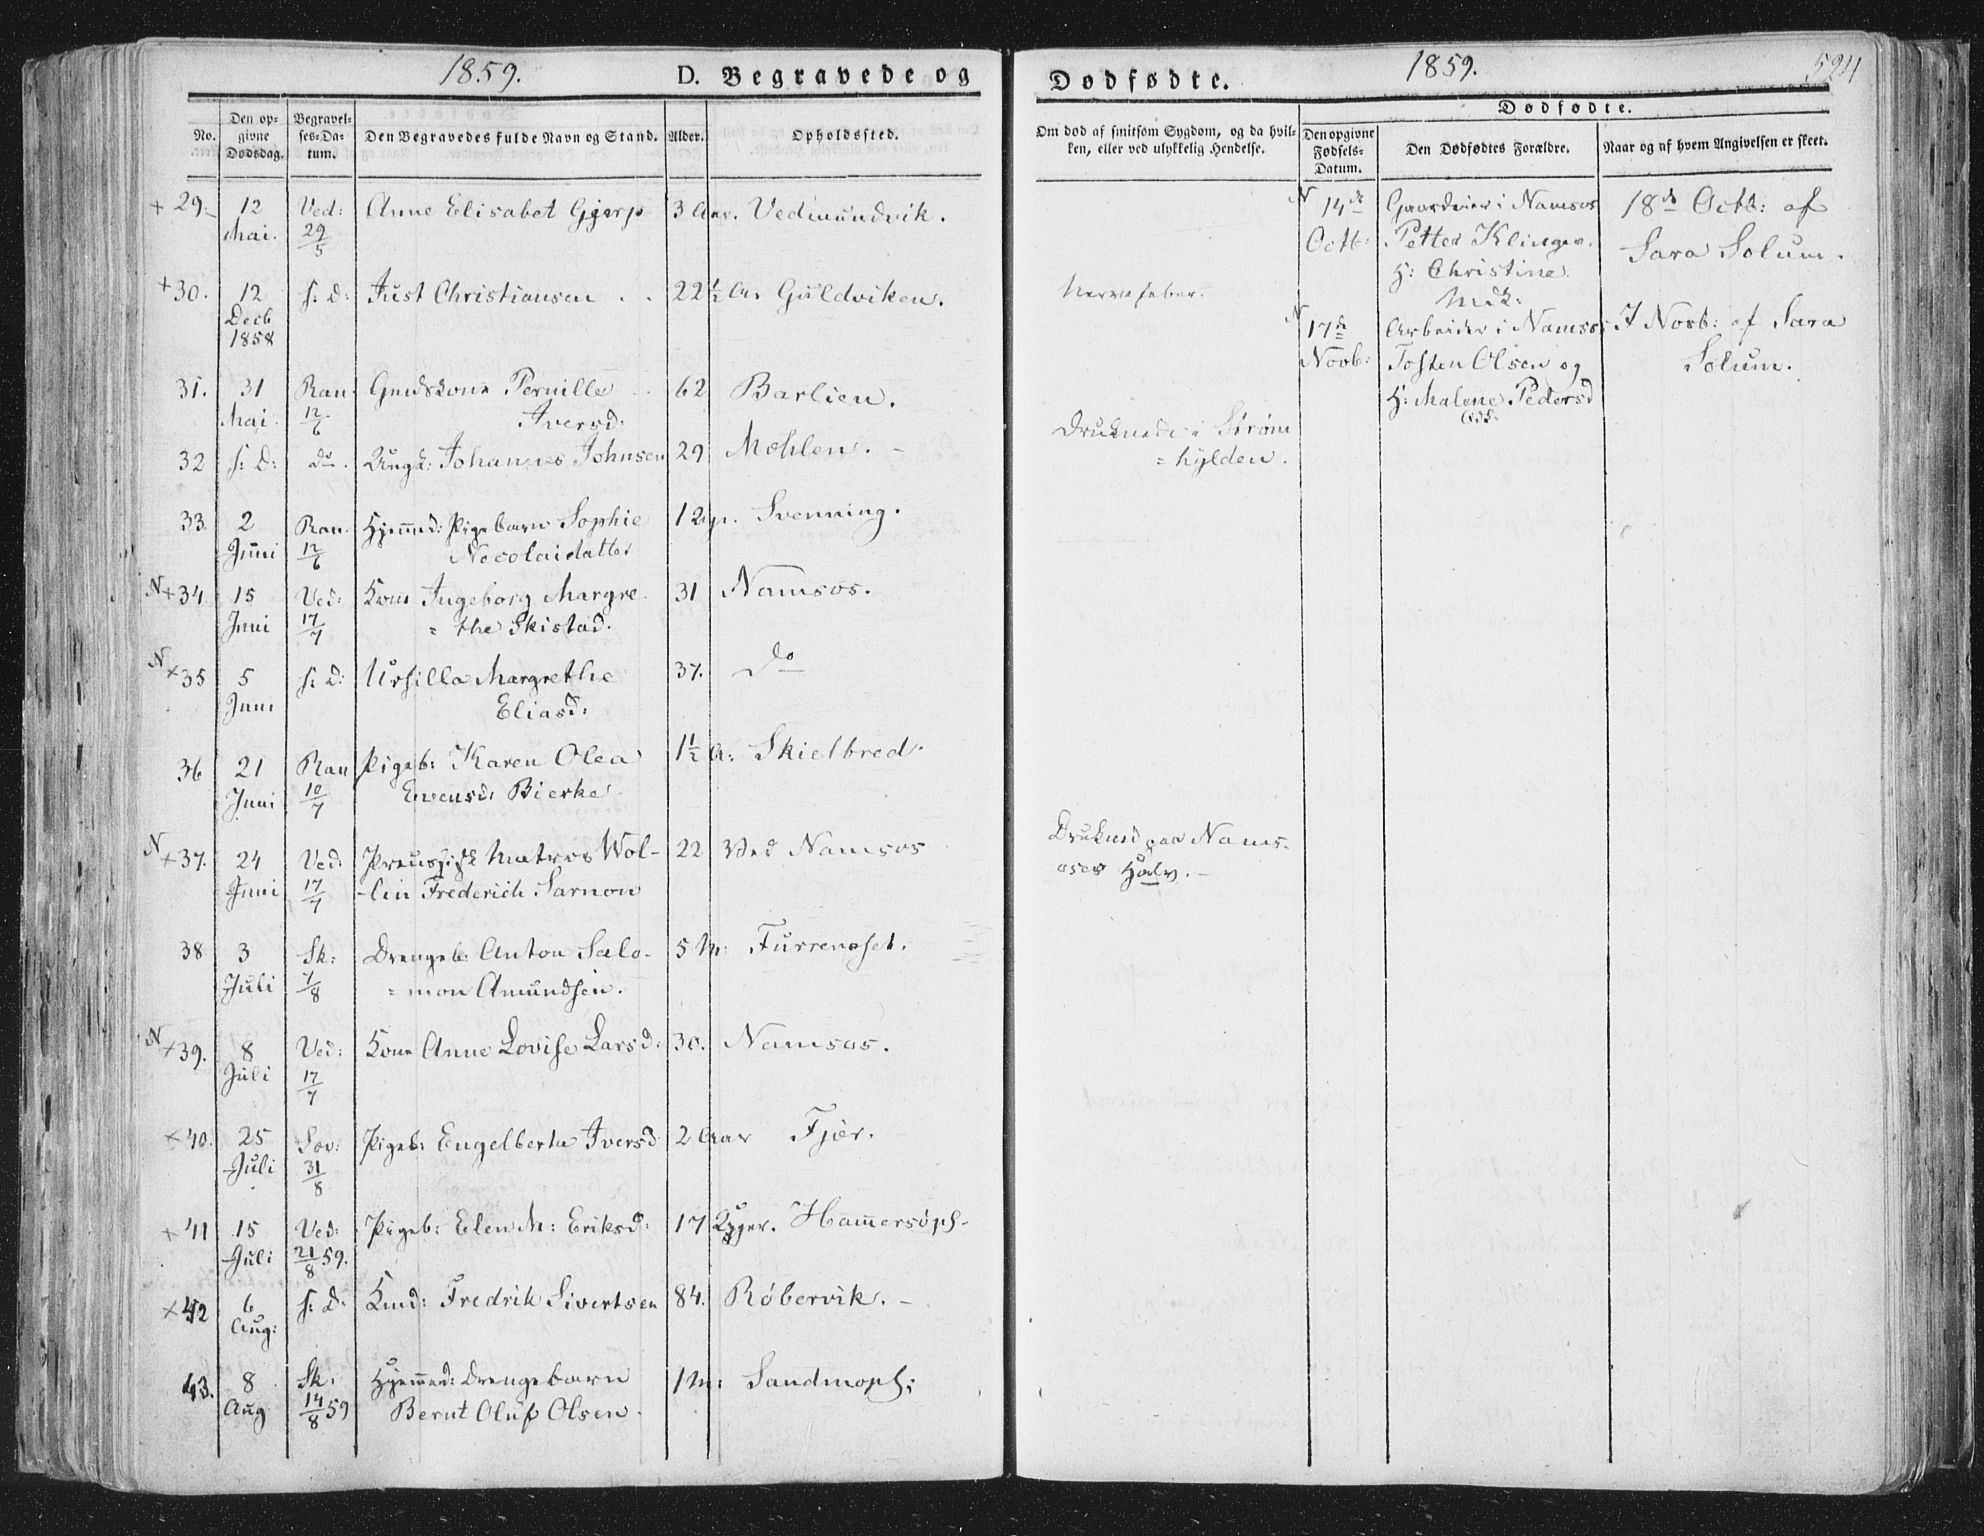 1859.
D. Begravede og
No.
Den op-
givne
Dødsdag.
Begravel-
ses-Da-
tum.
Den Begravedes fulde Navn og Stand.
Alder.
Opholdssted.
+ 29.
12
Mai.
Ved:
29/5
Anne Elisabet Gjerp
3 Aar.
Vedmundvik.
+30.
12
Decb
1858
s: D:
Just Christiansen
22½ A.
Guldviken.
31.
31
Mai.
Ran.
12/6
Gmdskone Pernille
Iversd.
62
Barlien.
32
s: D:
do.
Ungk: Johannes Johnsen
29
Moehlen. -
33.
2
Juni
Ran.
12/6
Hjemmed: Pigebarn Sophie
Necolaidatter
12
Svenning.
N +34
15
Juni
Ved:
17/7
Kone Ingeborg Margre
= the Skistad.
31
Namsos.
N +35
5
Juni
s: D:
Ursilla Margrethe
Eliasd:
37.
do
36
21
Juni
Ran
10/7
Pigeb: Karen Olea
Evensd: Bierke
1½ A:
Skielbred.
N +37.
24
Juni
Ved:
17/7
Preussisk Matros Wol-
-lin Frederich Sarnon
22
Ved Namsos
38
3
Juli
Sk:
7/8
Drengeb: Anton Salo-
= mon Amundsen.
5 M:
Furrenæset.
N +39.
8
Juli
Ved:
17/7
Kone Anne Lovise Larsd:
30.
Namsos.
+40.
25
Juli
Sæv:
31/8
Pigeb: Engelberta Iversd
2 Aar
Fjær.
+41
15
Juli
Ved:
21/8 59.
Pigeb: Elen M: Eriksd:
17 Uger.
+42
6
Aug:
s: D.
Kmd: Fredrik Sivertsen
84.
Røbervik. -
43.
8
Aug
Sk.
14/8 59
Hjemmed: Drengebarn
Bernt Oluf Olsen.
1 M:
Dodfødte.
1859.
524
Om død af smitsom Sygdom, og da hvil-
ken, eller ved ulykkelig Hendelse.
Dødfødte.
Den opgivne
Fødsels-
Datum.
Den Dødfødtes Forældre.
Naar og af hvem Angivelsen er skeet.
Nervefeber.
Druknede i Strøm
= hylden.
Druknad paa Nams-
oses Havn. -
N 14de
Octb:
Gaardeier i Namsos
Petter Klinger.
H: Christine
18de Octb: af
Sara Solum.
N
17de
Novb:
Arbeider i Namsos
Tosten Olsen og
H: Malene Pedersd
7 Novb: af Sara
Solum.